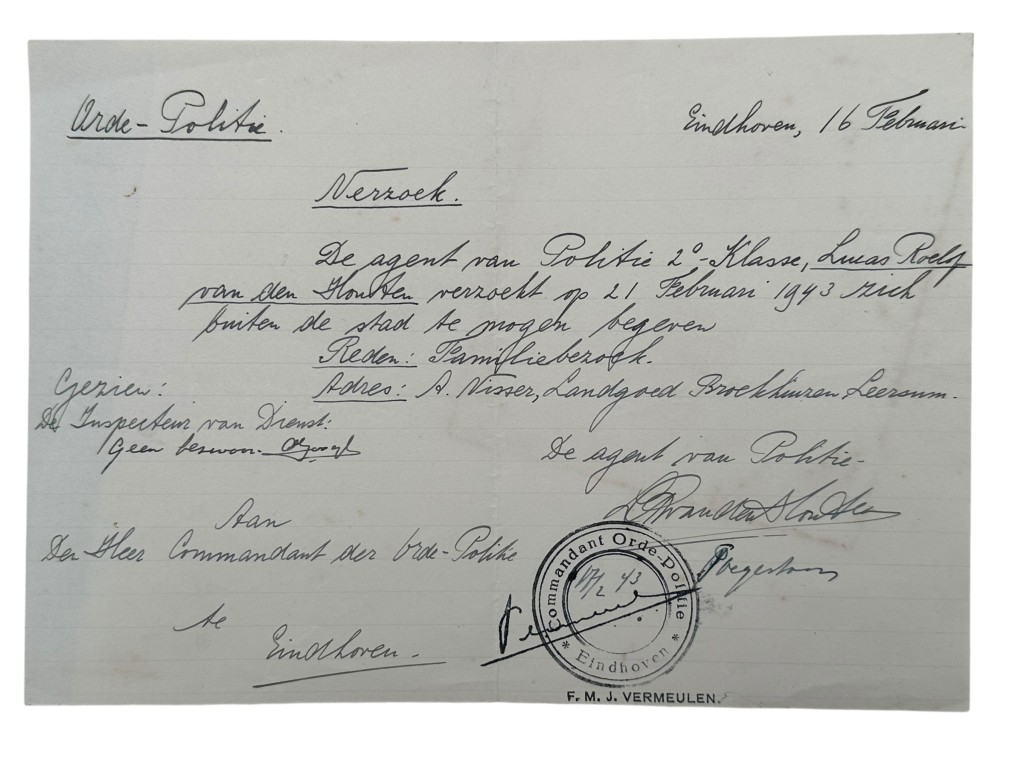 Orde-Politie.
Eindhoven, 16 Februari
Verzoek.
De agent van Politie 2e Klasse, Lucas Roelof
van den Houten verzoekt op 21 Februari 1943 zich
buiten de stad te mogen begeven
Reden: Familiebezoek.
Adres: A. Visser, Landgoed Broekhuizen Leersum.
Gezien:
De Inspecteur van Dienst:
Geen bezwaar.
De agent van Politie-
L R van den Houten
Aan
Den Heer Commandant der Orde-Politie
te
Eindhoven.
Toegestaan
Commandant Orde-Politie
* Eindhoven *
17/2 43
Vermeulen
F. M. J. VERMEULEN.